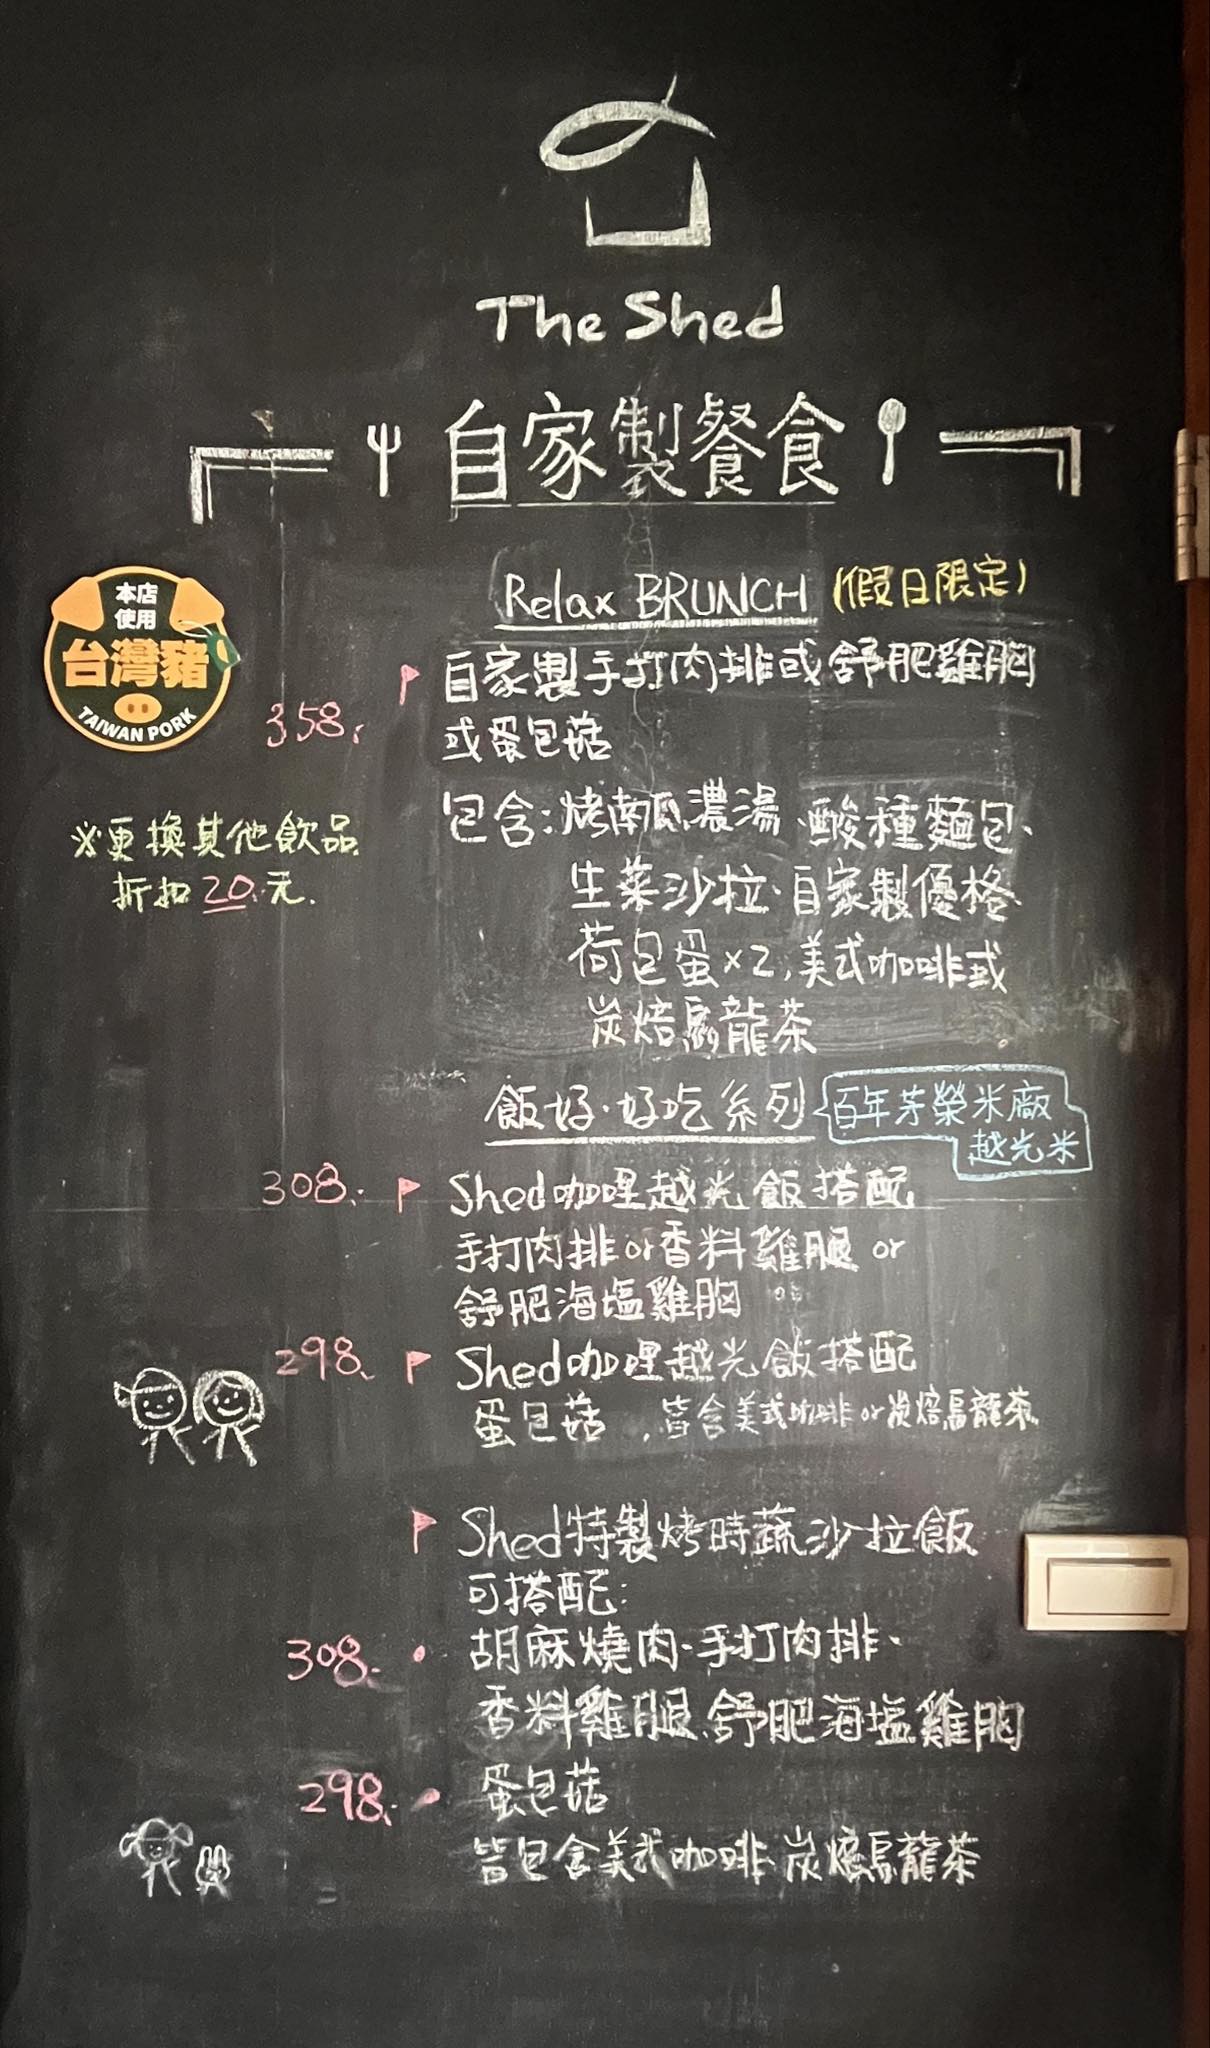 The Shed
自家製餐食
本店
使用
台灣豬
TAIWAN PORK
Relax BRUNCH (假日限定)
358. 自家製手打肉排或舒肥雞胸
或蛋包菇
包含:烤南瓜濃湯、酸種麵包、
生菜沙拉、自家製優格
荷包蛋x2,美式咖啡或
炭焙烏龍茶
※更換其他飲品
折扣20元.
飯好·好吃系列
百年芳榮米廠
越光米
308. Shed咖哩越光飯搭配
手打肉排or香料雞腿 or
舒肥海塩雞胸
298. Shed咖哩越光飯搭配
蛋包菇 ,皆含美式咖啡or炭焙烏龍茶
Shed特製烤時蔬沙拉飯
可搭配:
308. 胡麻燒肉、手打肉排、
香料雞腿、舒肥海塩雞胸
298. 蛋包菇
皆包含美式咖啡、炭焙烏龍茶